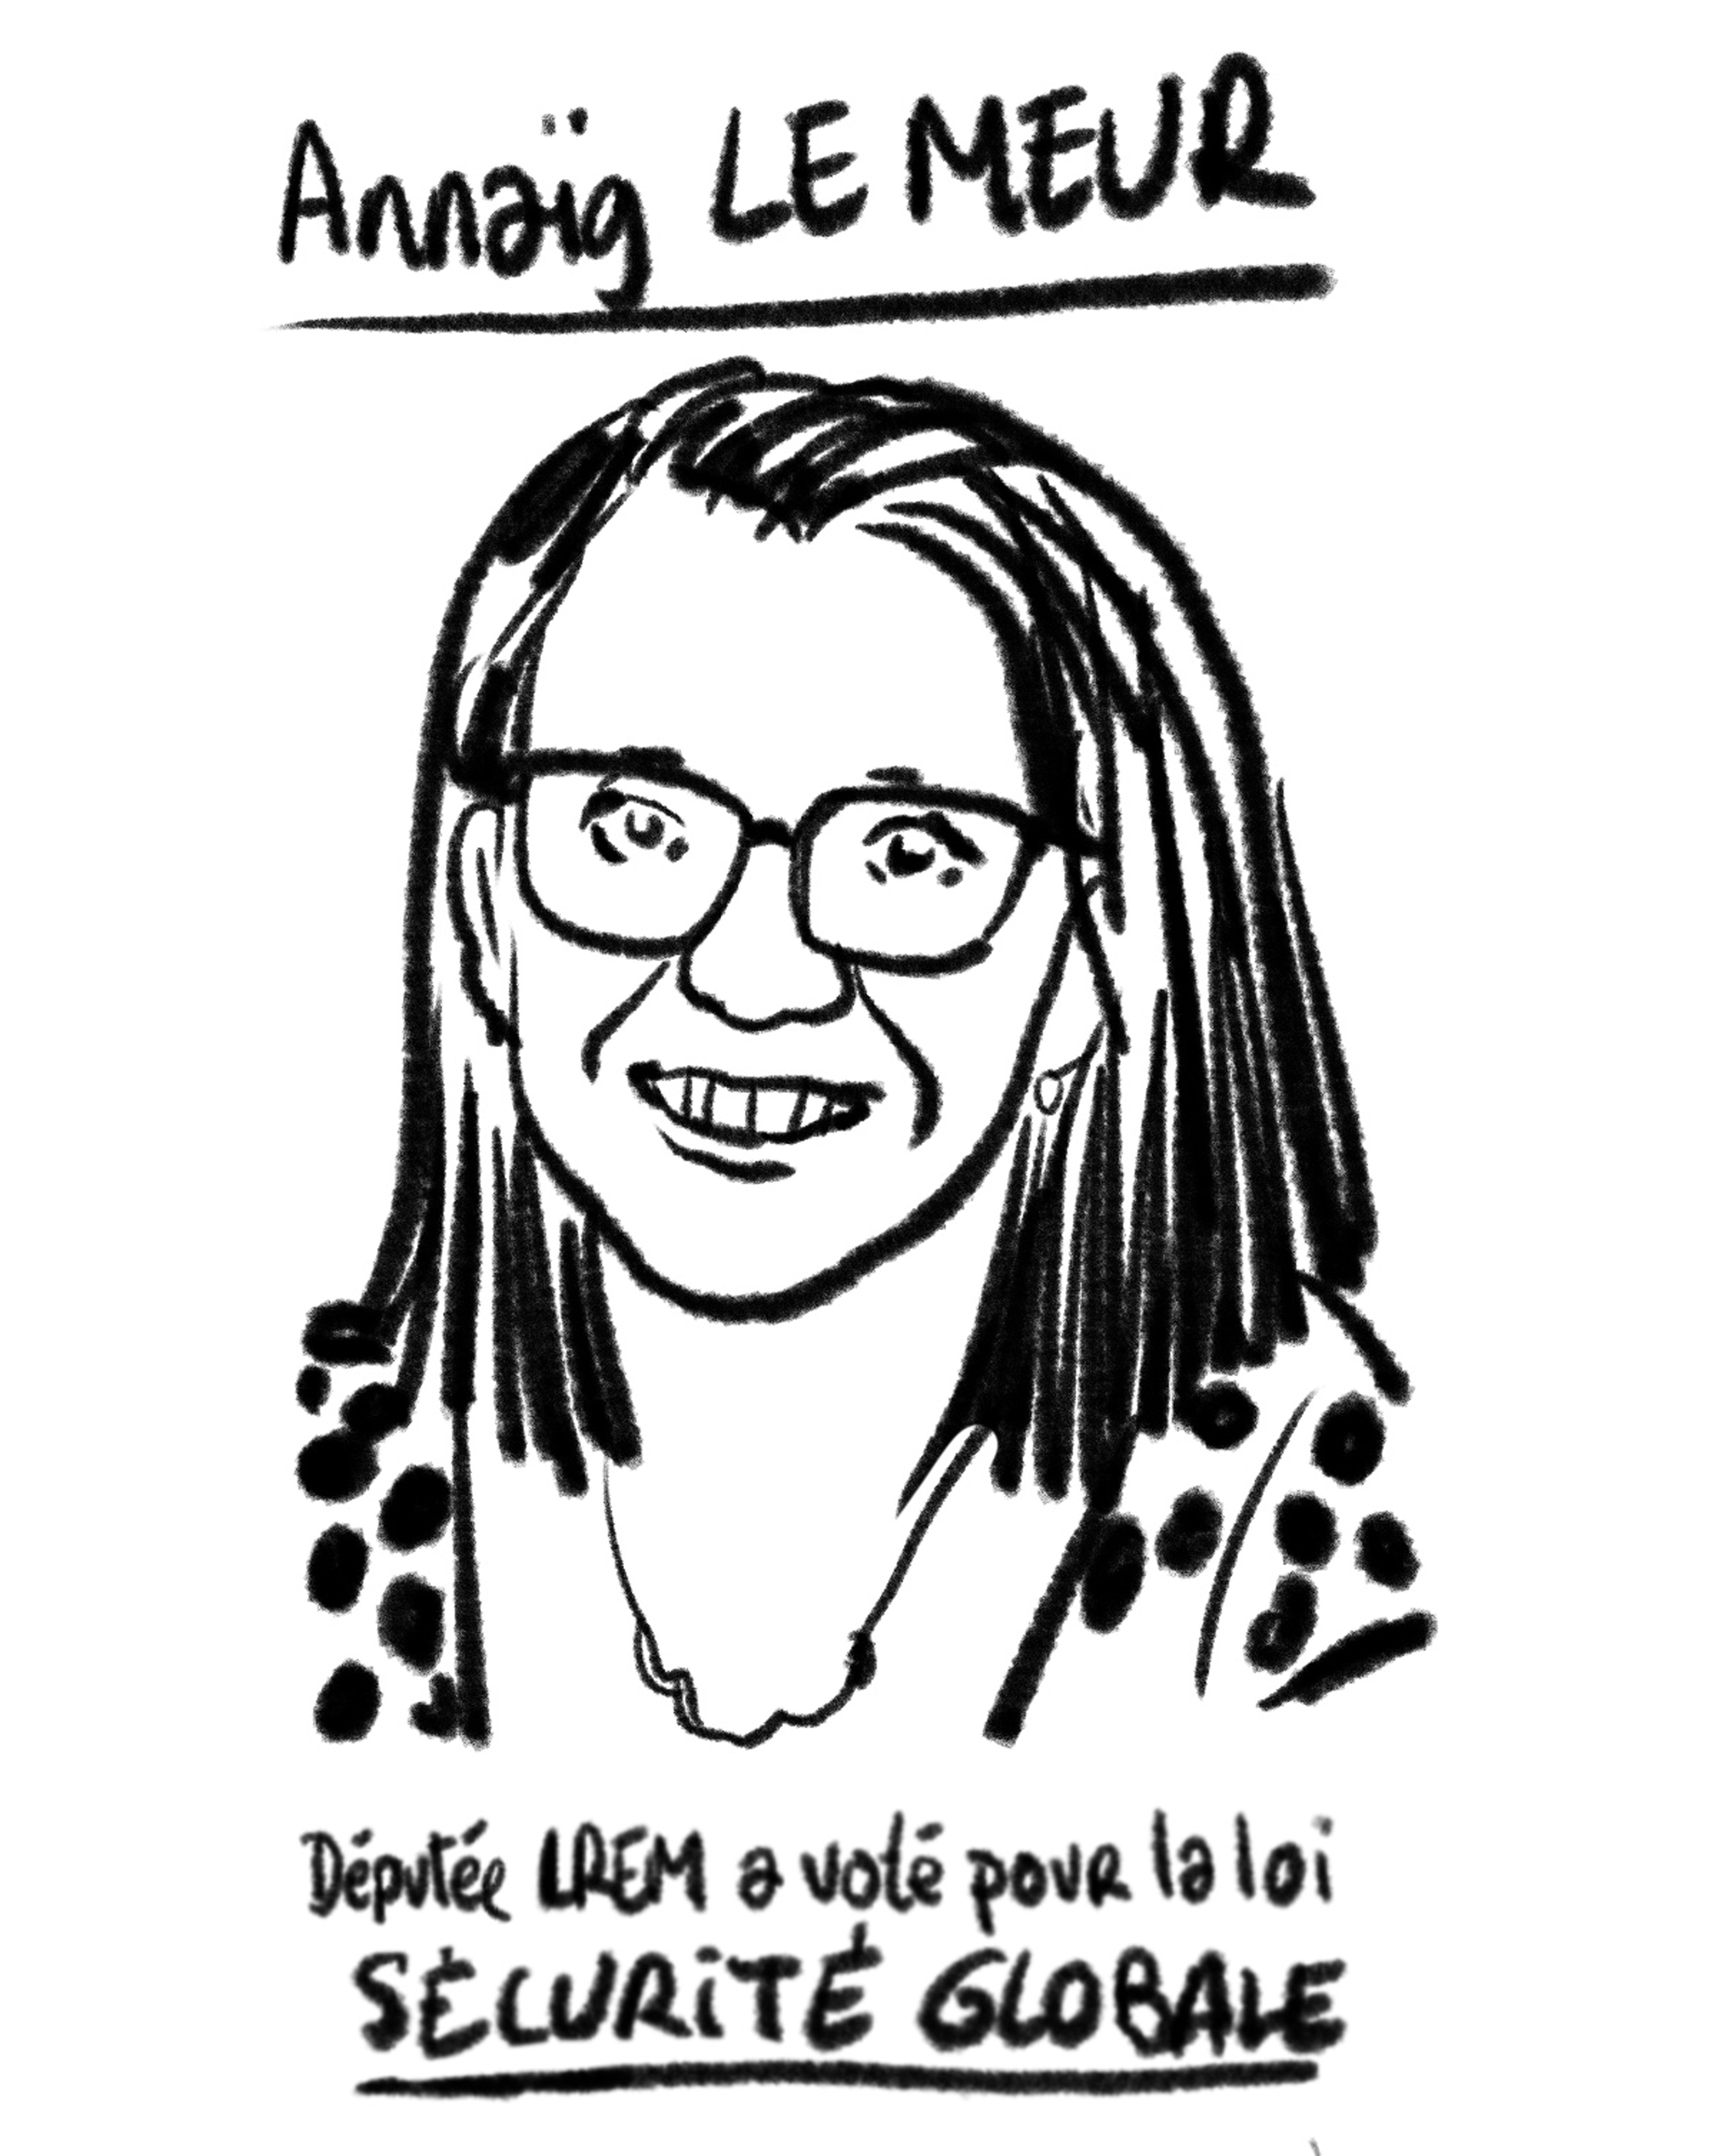 Annaïg LE MEUR
Députée LREM a voté pour la loi
SÉCURITÉ GLOBALE